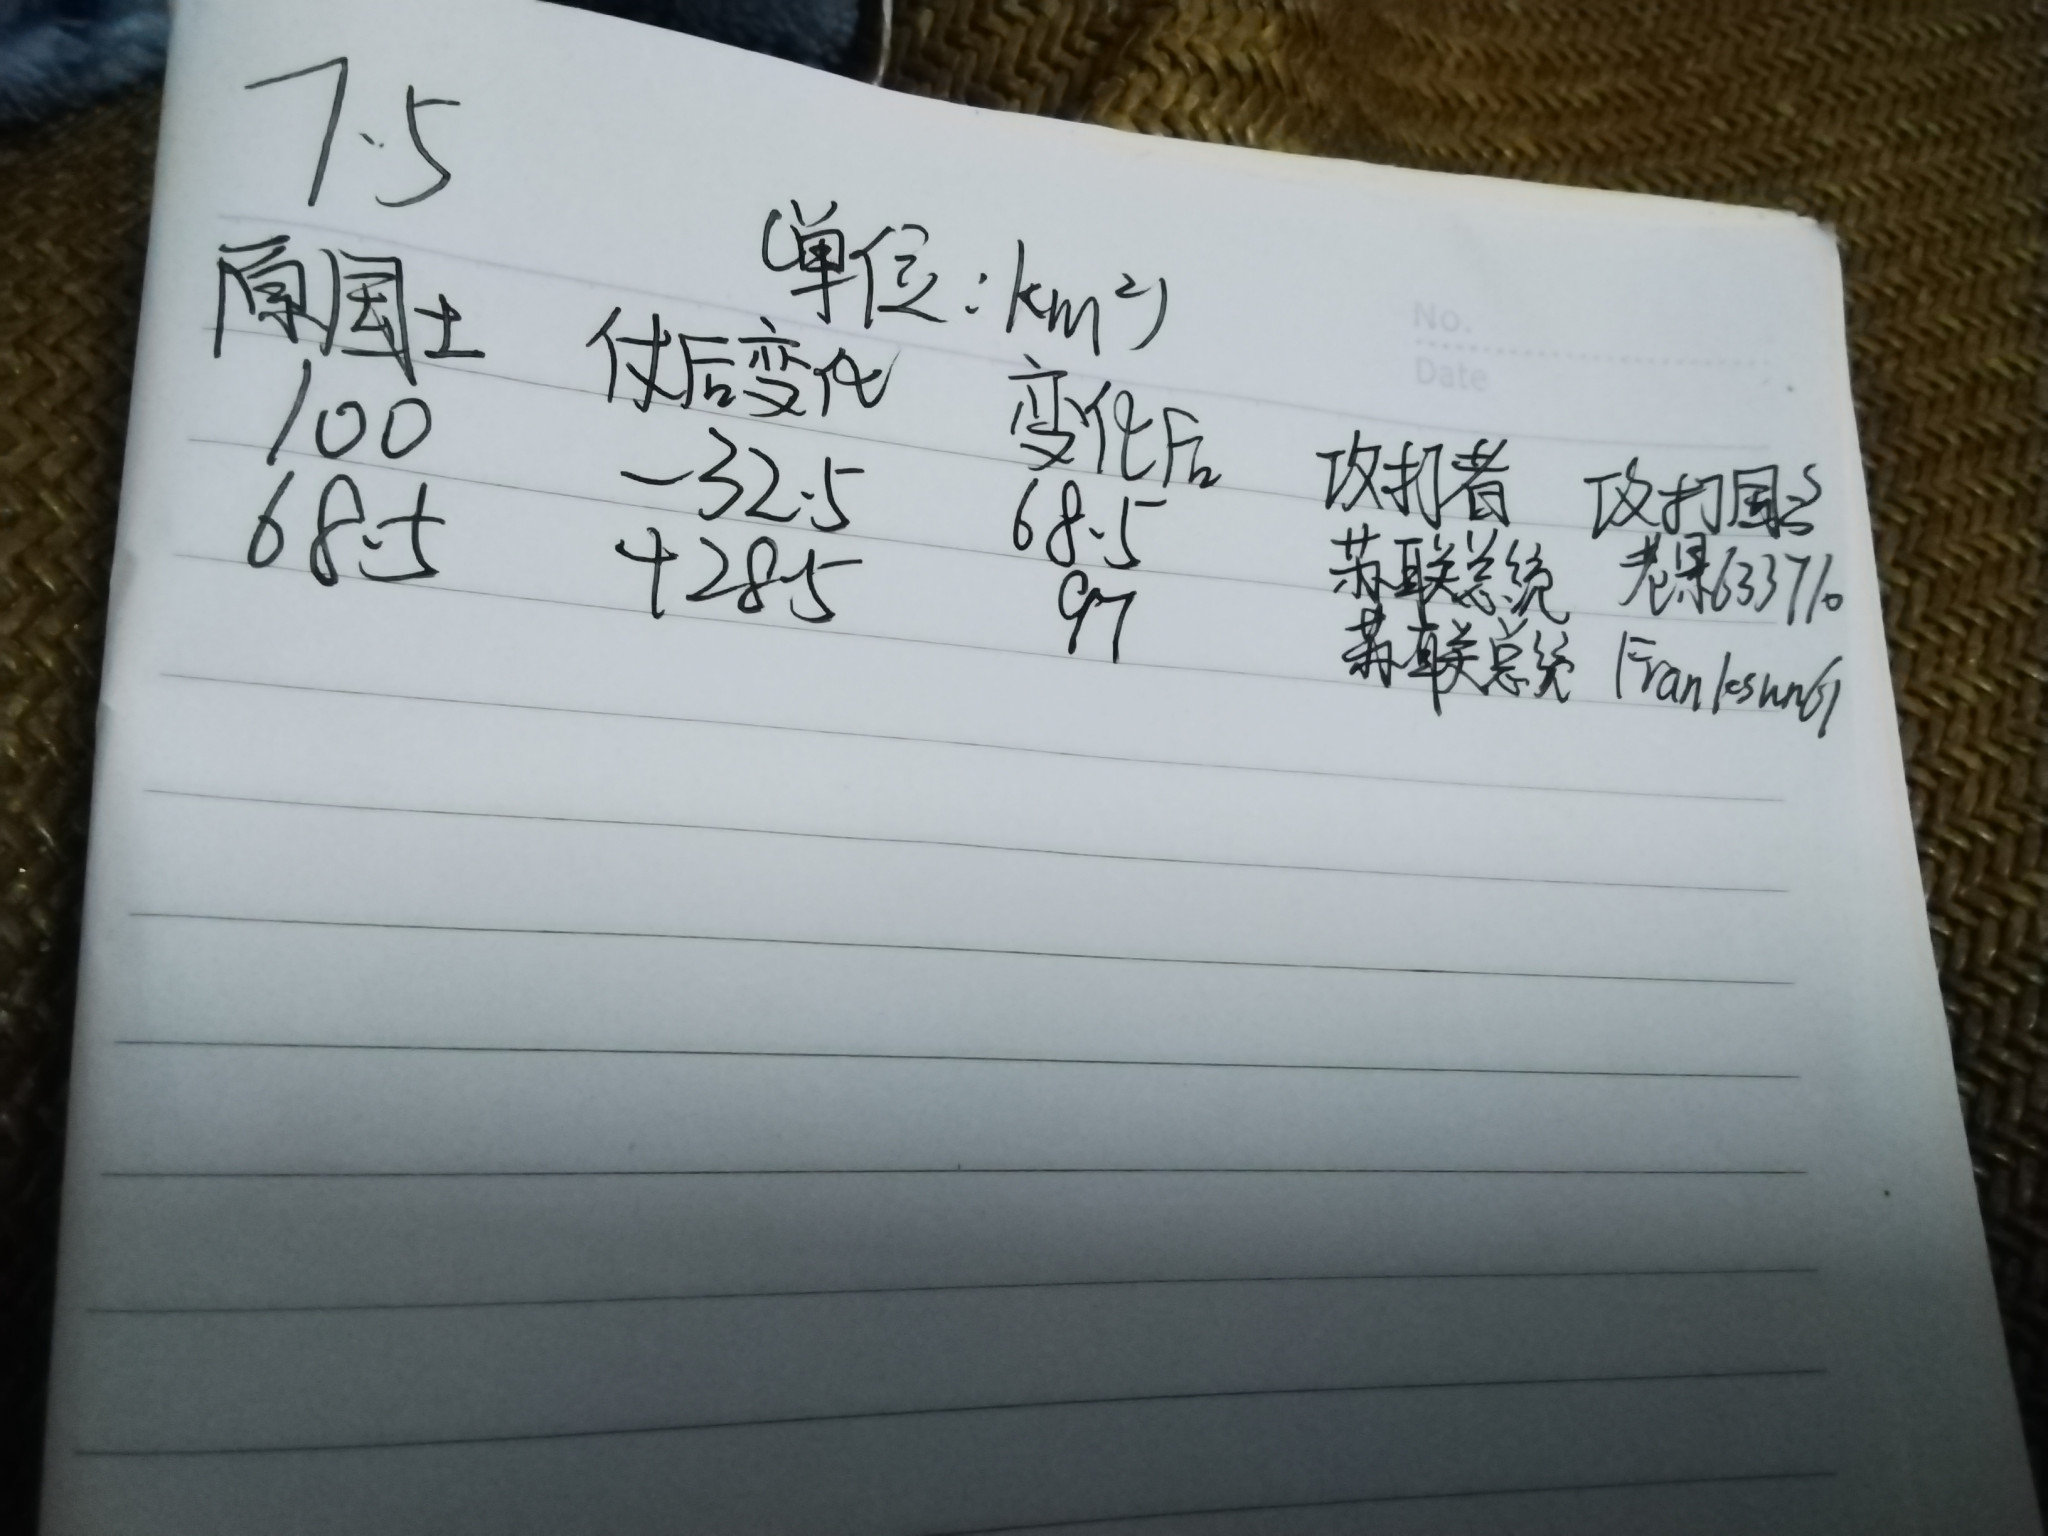 7.5
(单位:km²)
No.
Date
原国土 付后变化 变化后 攻打者 攻打国
100 -32.5 68.5 苏联总统 老果63371
68.5 +28.5 97 苏联总统